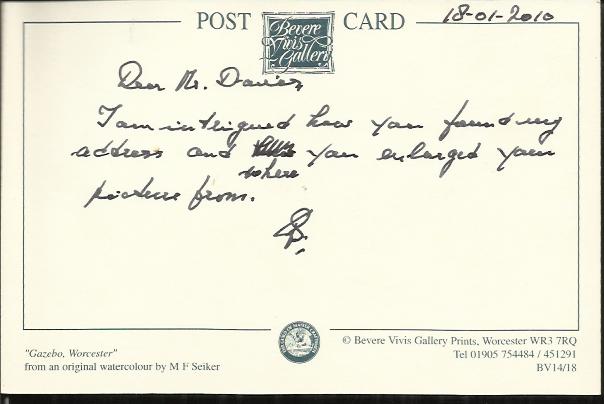 POST CARD
18-01-2010
Bevere
Vivis
Gallery
Dear Mr. Davies
I am intrigued how you found my
address and you enlarged your
where
picture from.
"Gazebo, Worcester"
from an original watercolour by M F Seiker
© Bevere Vivis Gallery Prints, Worcester WR3 7RQ
Tel 01905 754484 / 451291
BV14/18